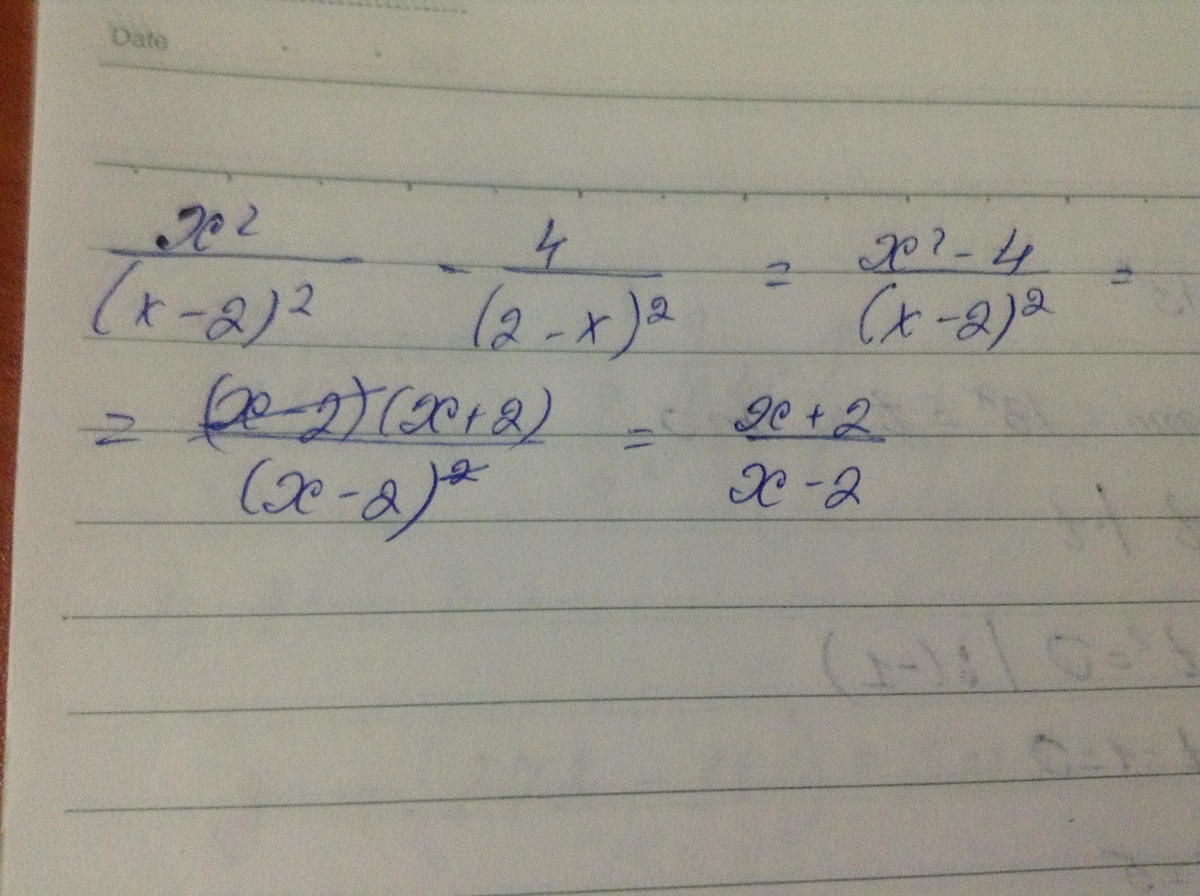 Date
x²/(x-2)² - 4/(2-x)² = x²-4/(x-2)² =
= (x-2)(x+2)/(x-2)² = x+2/x-2